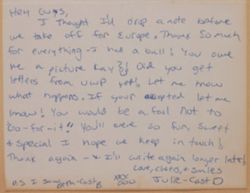 Hey Guys,
I thought I'd drop a note before
we take off for Europe. Thank So much
for everything. I had a ball! You owe
me a picture Kay?! Did you get
letters from UWP yet? Let me know
what happens. If your accepted let me
know! You would be a fool Not to
Go-for-it! You'll were so fun, sweet
& special I hope we keep in touch!
Thank again - & I'll write again longer later
Love, cheers, & smiles
XXX
OOO
JULIE - Cast D
P.S I